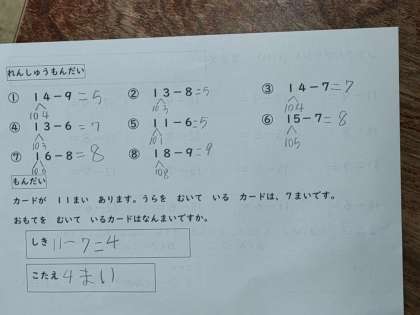 れんしゅうもんだい
① 14-9=5 ② 13-8=5 ③ 14-7=7
10 4 10 3 10 4
④ 13-6=7 ⑤ 11-6=5 ⑥ 15-7=8
10 3 10 1 10 5
⑦ 16-8=8 ⑧ 18-9=9
10 8
もんだい
カードが 11まい あります。うらを むいて いる カードは、7まいです。
おもてを むいて いるカードはなんまいですか。
しき 11-7=4
こたえ 4まい